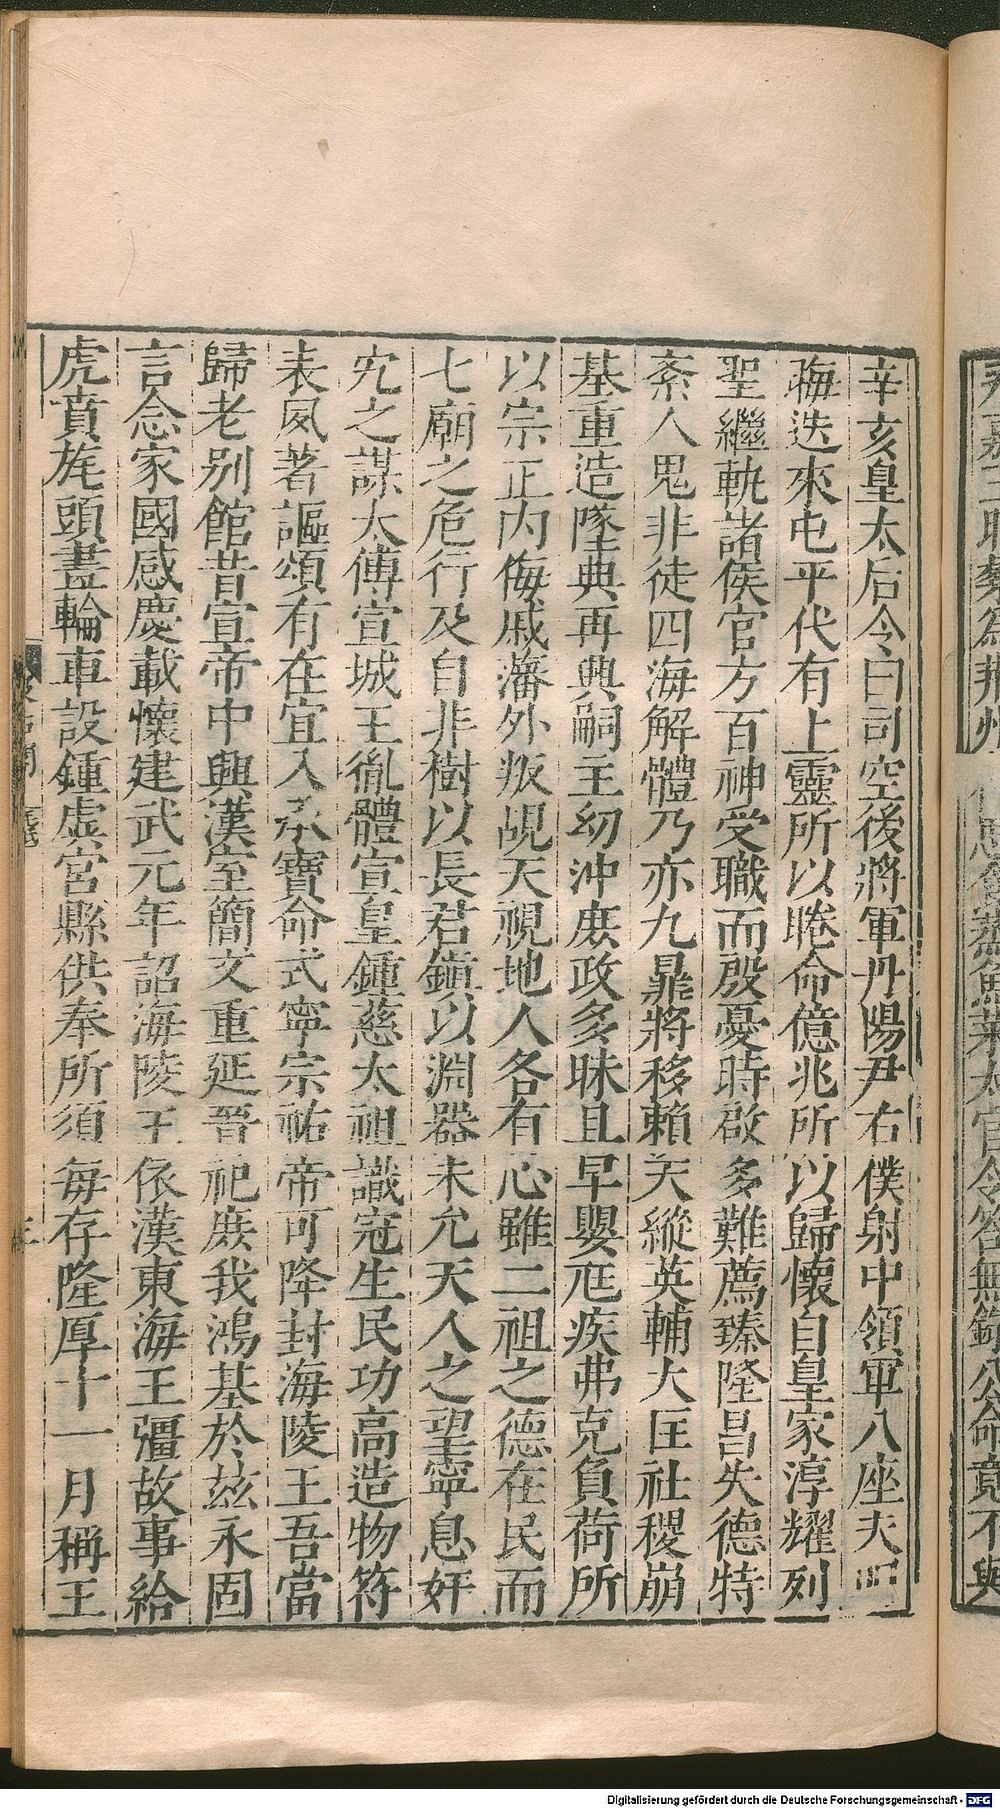 辛亥皇太后令曰司空後將軍丹陽尹右僕射中領軍八座夫明
晦迭來屯平代有上靈所以睠命億兆所以歸懷自皇家淳耀列
聖繼軌諸侯官方百神受職而殷憂時啟多難薦臻隆昌失德特
紊人鬼非徒四海解體乃亦九鼎將移賴天縱英輔大匡社稷崩
基重造墜典再興嗣主幼沖庶政多昧且早嬰尫疾弗克負荷所
以宗正內侮戚藩外叛覘天視地人各有心雖二祖之德在民而
七廟之危行及自非樹以長君鎮以淵器未允天人之望寧息奸
宄之謀太傅宣城王胤體宣皇鍾慈太祖識冠生民功高造物符
表夙著謳頌有在宜入承寶命式寧宗祐帝可降封海陵王吾當
歸老別館昔宣帝中興漢室簡文重延晉祀庶我鴻基於茲永固
言念家國感慶載懷建武元年詔海陵王依漢東海王彊故事給
虎賁旄頭畫輪車設鍾虛宮縣供奉所須每存隆厚十一月稱王
Digitalisierung gefördert durch die Deutsche Forschungsgemeinschaft - DFG